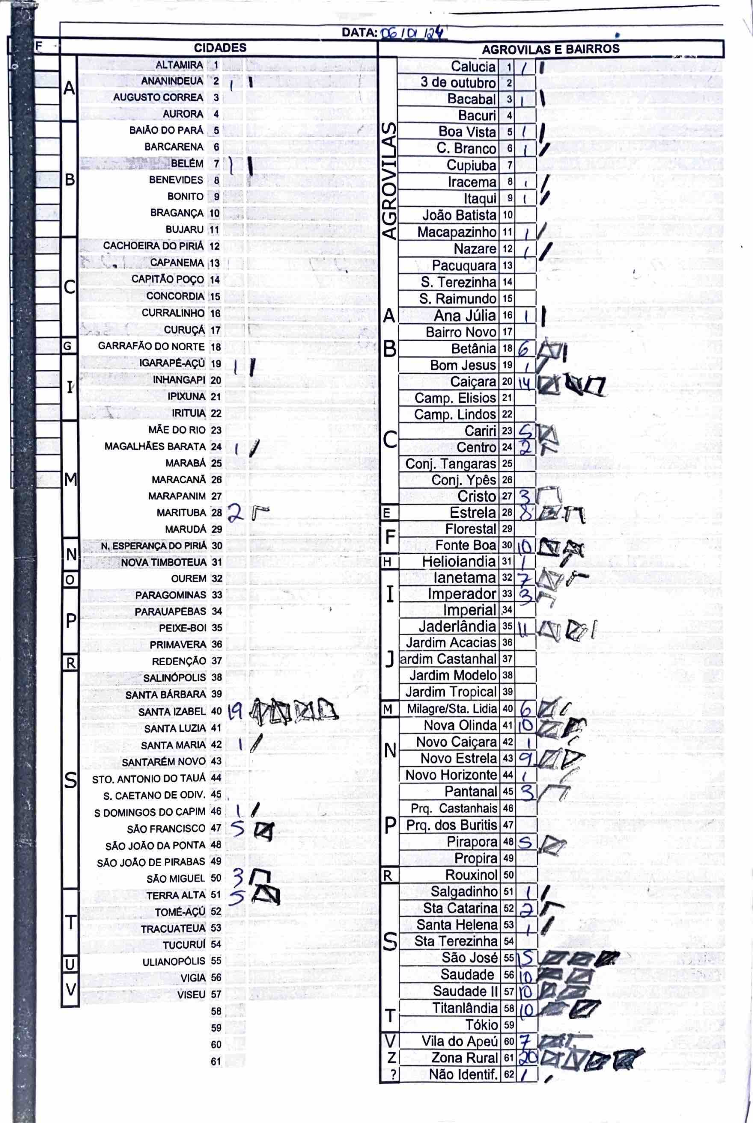 DATA: 06/01/24
F CIDADES
A
ALTAMIRA 1
ANANINDEUA 2 1
AUGUSTO CORREA 3
AURORA 4
B
BAIÃO DO PARÁ 5
BARCARENA 6
BELÉM 7 1
BENEVIDES 8
BONITO 9
BRAGANÇA 10
BUJARU 11
C
CACHOEIRA DO PIRIÁ 12
CAPANEMA 13
CAPITÃO POÇO 14
CONCORDIA 15
CURRALINHO 16
CURUÇÁ 17
G GARRAFÃO DO NORTE 18
I
IGARAPÉ-AÇÚ 19 1
INHANGAPI 20
IPIXUNA 21
IRITUIA 22
M
MÃE DO RIO 23
MAGALHÃES BARATA 24 1
MARABÁ 25
MARACANÃ 26
MARAPANIM 27
MARITUBA 28 2
MARUDÁ 29
N
N. ESPERANÇA DO PIRIÁ 30
NOVA TIMBOTEUA 31
O OUREM 32
P
PARAGOMINAS 33
PARAUAPEBAS 34
PEIXE-BOI 35
PRIMAVERA 36
R REDENÇÃO 37
S
SALINÓPOLIS 38
SANTA BÁRBARA 39
SANTA IZABEL 40 19
SANTA LUZIA 41
SANTA MARIA 42 1
SANTARÉM NOVO 43
STO. ANTONIO DO TAUÁ 44
S. CAETANO DE ODIV. 45
S DOMINGOS DO CAPIM 46 1
SÃO FRANCISCO 47 5
SÃO JOÃO DA PONTA 48
SÃO JOÃO DE PIRABAS 49
SÃO MIGUEL 50 3
T
TERRA ALTA 51 5
TOMÉ-AÇÚ 52
TRACUATEUA 53
TUCURUÍ 54
U ULIANOPÓLIS 55
V
VIGIA 56
VISEU 57
58
59
60
61
AGROVILAS E BAIRROS
AGROVILAS
Calucia 1 1
3 de outubro 2
Bacabal 3 1
Bacuri 4
Boa Vista 5 1
C. Branco 6 1
Cupiuba 7
Iracema 8 1
Itaqui 9 1
João Batista 10
Macapazinho 11 1
Nazare 12 1
Pacuquara 13
S. Terezinha 14
S. Raimundo 15
A Ana Júlia 16 1
Bairro Novo 17
B Betânia 18 6
Bom Jesus 19 1
Caiçara 20 14
Camp. Elisios 21
Camp. Lindos 22
C
Cariri 23 5
Centro 24 2
Conj. Tangaras 25
Conj. Ypês 26
Cristo 27 3
E Estrela 28 8
F
Florestal 29
Fonte Boa 30 10
H Heliolandia 31 1
I
Ianetama 32 7
Imperador 33 3
Imperial 34
Jaderlândia 35 11
Jardim Acacias 36
J ardim Castanhal 37
Jardim Modelo 38
Jardim Tropical 39
M Milagre/Sta. Lidia 40 6
N
Nova Olinda 41 10
Novo Caiçara 42 1
Novo Estrela 43 9
Novo Horizonte 44 1
Pantanal 45 3
Prq. Castanhais 46
P Prq. dos Buritis 47
Pirapora 48 5
Propira 49
R Rouxinol 50
S
Salgadinho 51 1
Sta Catarina 52 2
Santa Helena 53 1
Sta Terezinha 54
São José 55 15
Saudade 56 10
Saudade II 57 10
T
Titanlândia 58 10
Tókio 59
V Vila do Apeú 60 7
Z Zona Rural 61 20
? Não Identif. 62 1